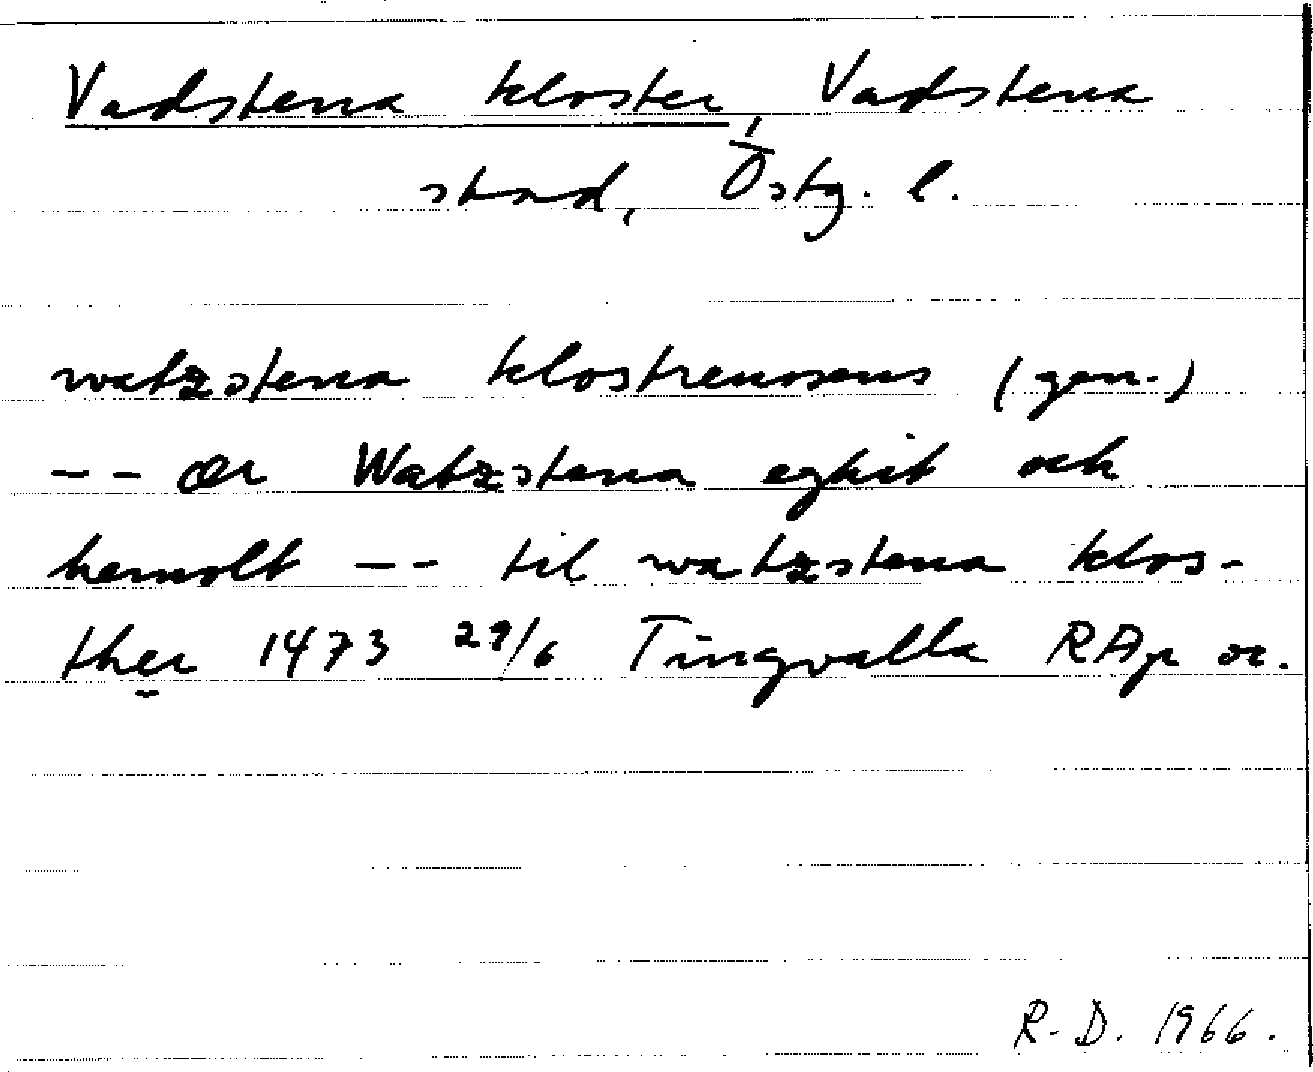 Vadstena kloster, Vadstena
stad, Östg. l.
watzstena klostrenosens (gen.)
--Ær Watzstena eghit och
hemolt -- til watzstena klos-
ther 1473 29/6 Tingvalla RAp or.
R.D. 1966.